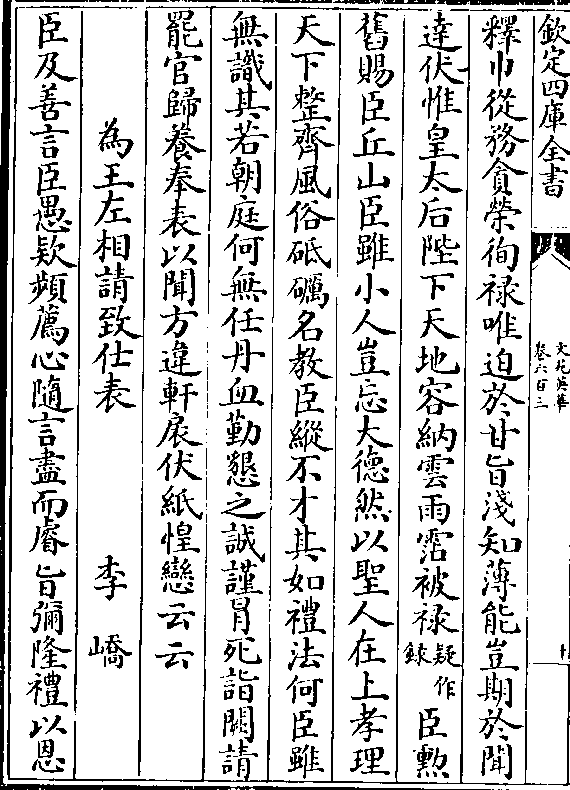 欽定四庫全書
文苑英華
卷六百三
十
釋巾從務貪榮徇禄唯迫於甘旨淺知薄能豈期於聞
達伏惟皇太后陛下天地容納雲雨霑被禄疑作録臣勲
舊賜臣丘山臣雖小人豈忘大德然以聖人在上孝理
天下整齊風俗砥礪名教臣縱不才其如禮法何臣雖
無識其若朝庭何無任丹血勤懇之誠謹冒死詣闕請
罷官歸養奉表以聞方違軒扆伏紙惶戀云云
為王左相請致仕表 李嶠
臣及善言臣愚欵頻薦心隨言盡而睿旨彌隆禮以恩